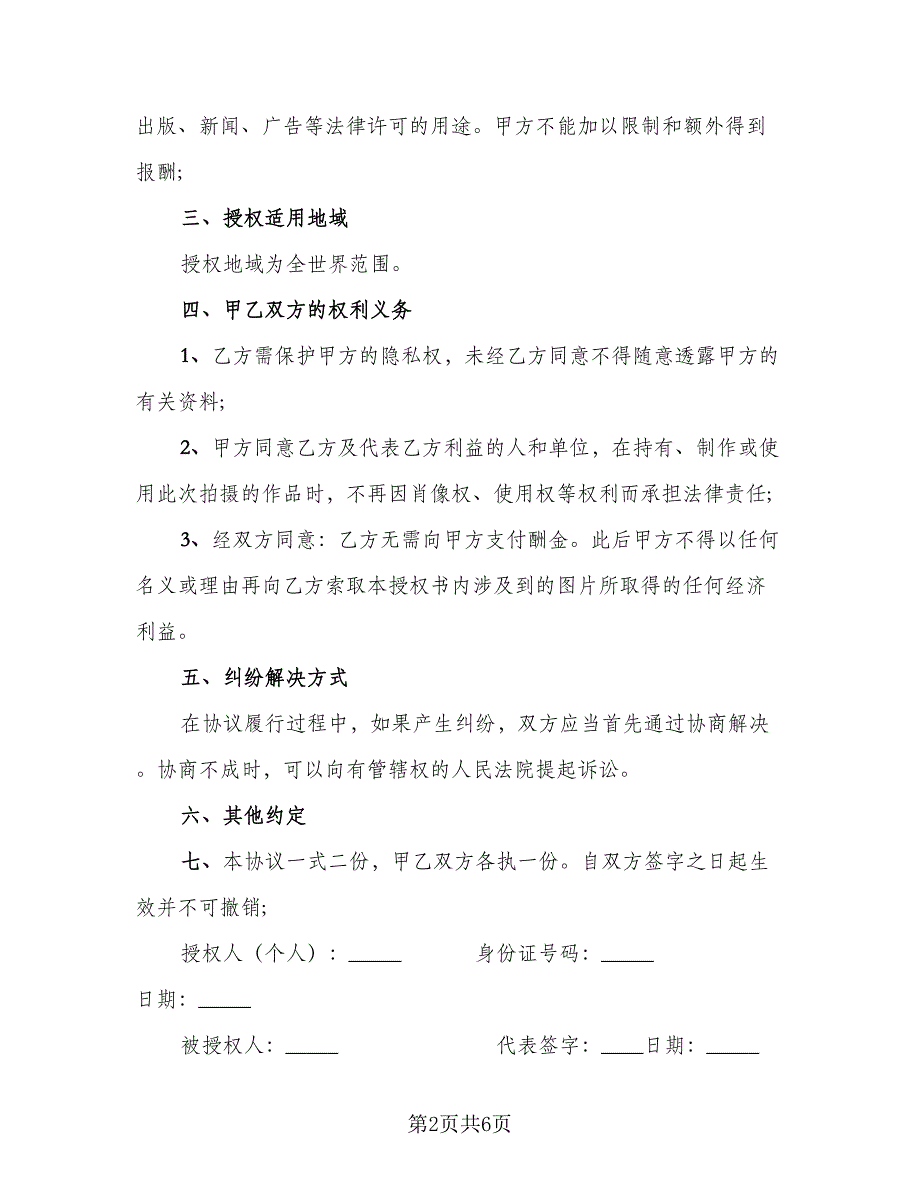 出版、新闻、广告等法律许可的用途。甲方不能加以限制和额外得到
报酬;
三、授权适用地域
授权地域为全世界范围。
四、甲乙双方的权利义务
1、乙方需保护甲方的隐私权，未经乙方同意不得随意透露甲方的
有关资料;
2、甲方同意乙方及代表乙方利益的人和单位，在持有、制作或使
用此次拍摄的作品时，不再因肖像权、使用权等权利而承担法律责任;
3、经双方同意：乙方无需向甲方支付酬金。此后甲方不得以任何
名义或理由再向乙方索取本授权书内涉及到的图片所取得的任何经济
利益。
五、纠纷解决方式
在协议履行过程中，如果产生纠纷，双方应当首先通过协商解决
。协商不成时，可以向有管辖权的人民法院提起诉讼。
六、其他约定
七、本协议一式二份，甲乙双方各执一份。自双方签字之日起生
效并不可撤销;
授权人（个人）：_____ 身份证号码：_____
日期：_____
被授权人：_____ 代表签字：____日期：_____
第2页共6页